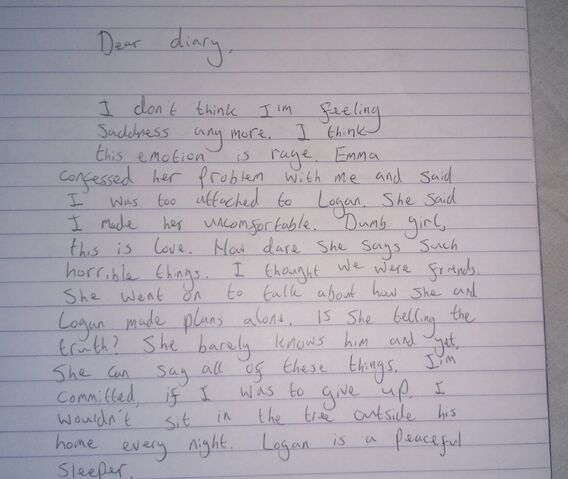 Dear diary,
I don't think I'm feeling
Saddness any more. I think
this emotion is rage. Emma
confessed her problem with me and said
I was too attached to Logan. She said
I made her uncomfortable. Dumb girl,
this is love. How dare she says such
horrible things. I thought we were friends.
She went on to talk about how she and
Logan made plans alone. Is she telling the
truth? She barely knows him and yet,
She can say all of these things. I'm
committed, if I was to give up, I
wouldn't sit in the tree outside his
home every night. Logan is a peaceful
Sleeper.